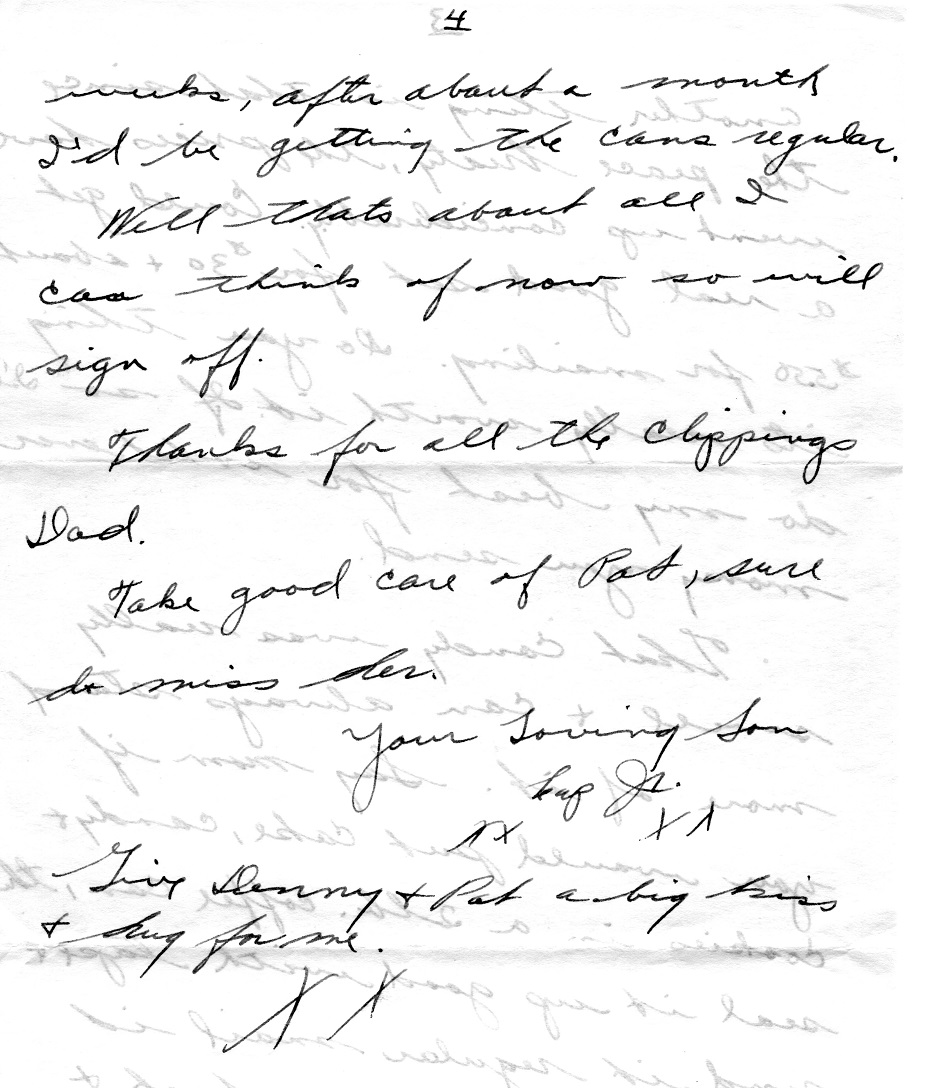 4
weeks, after about a month
I'd be getting the cans regular.
Well thats about all I
can think of now so will
sign off.
Thanks for all the clippings
Dad.
Take good care of Pat, sure
do miss her.
Your Loving Son
Jr.
XX XX
Give Denny & Pat a big kiss
& hug for me.
X X